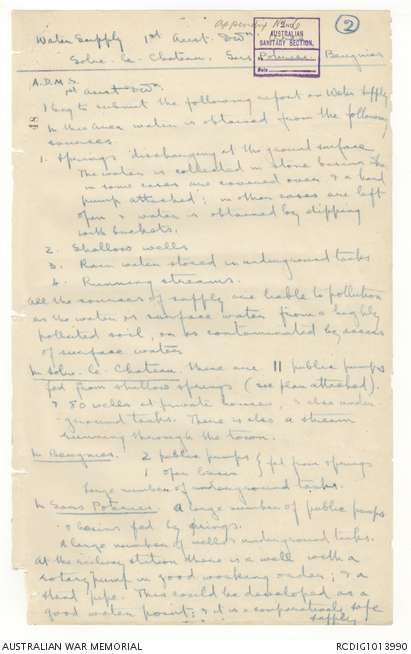 Appendix No 2
②
Water Supply 1st Aust. Dvn.
AUSTRALIAN
SANITARY SECTION.
Solre-le-Chateau, Sars Poteries Beugnies
No.
Date
A.D.M.S.
1st Aust Dvn.
48
I beg to submit the following report on Water Supply
In this area water is obtained from the following
sources.
1. Springs discharging at the ground surface
The water is collected in stone basins. The
in some cases are covered over & a hand
pump attached; in other cases are left
open & water is obtained by dipping
with buckets.
2. Shallow wells
3. Rain water stored in underground tanks
4. Running streams.
All the sources of supply are liable to pollution
as the water is surface water from a highly
polluted soil, or is contaminated by access
of surface water
In Solre-le-Chateau. There are 11 public pumps
fed from shallow springs (see plan attached).
& 80 wells at private houses, & also under
ground tanks. There is also a stream
running through the town.
In Beugnies. 2 public pumps } fed from springs
1 open basin
Large number of underground tanks.
In Sars Poteries A large number of public pumps
& basins fed by springs.
A large number of wells & underground tanks.
At the railway station there is a well with a
rotary pump in good working order; & a
stand pipe. This could be developed as a
good water point; & it is a comparatively safe
supply
AUSTRALIAN WAR MEMORIAL
RCDIG1013990